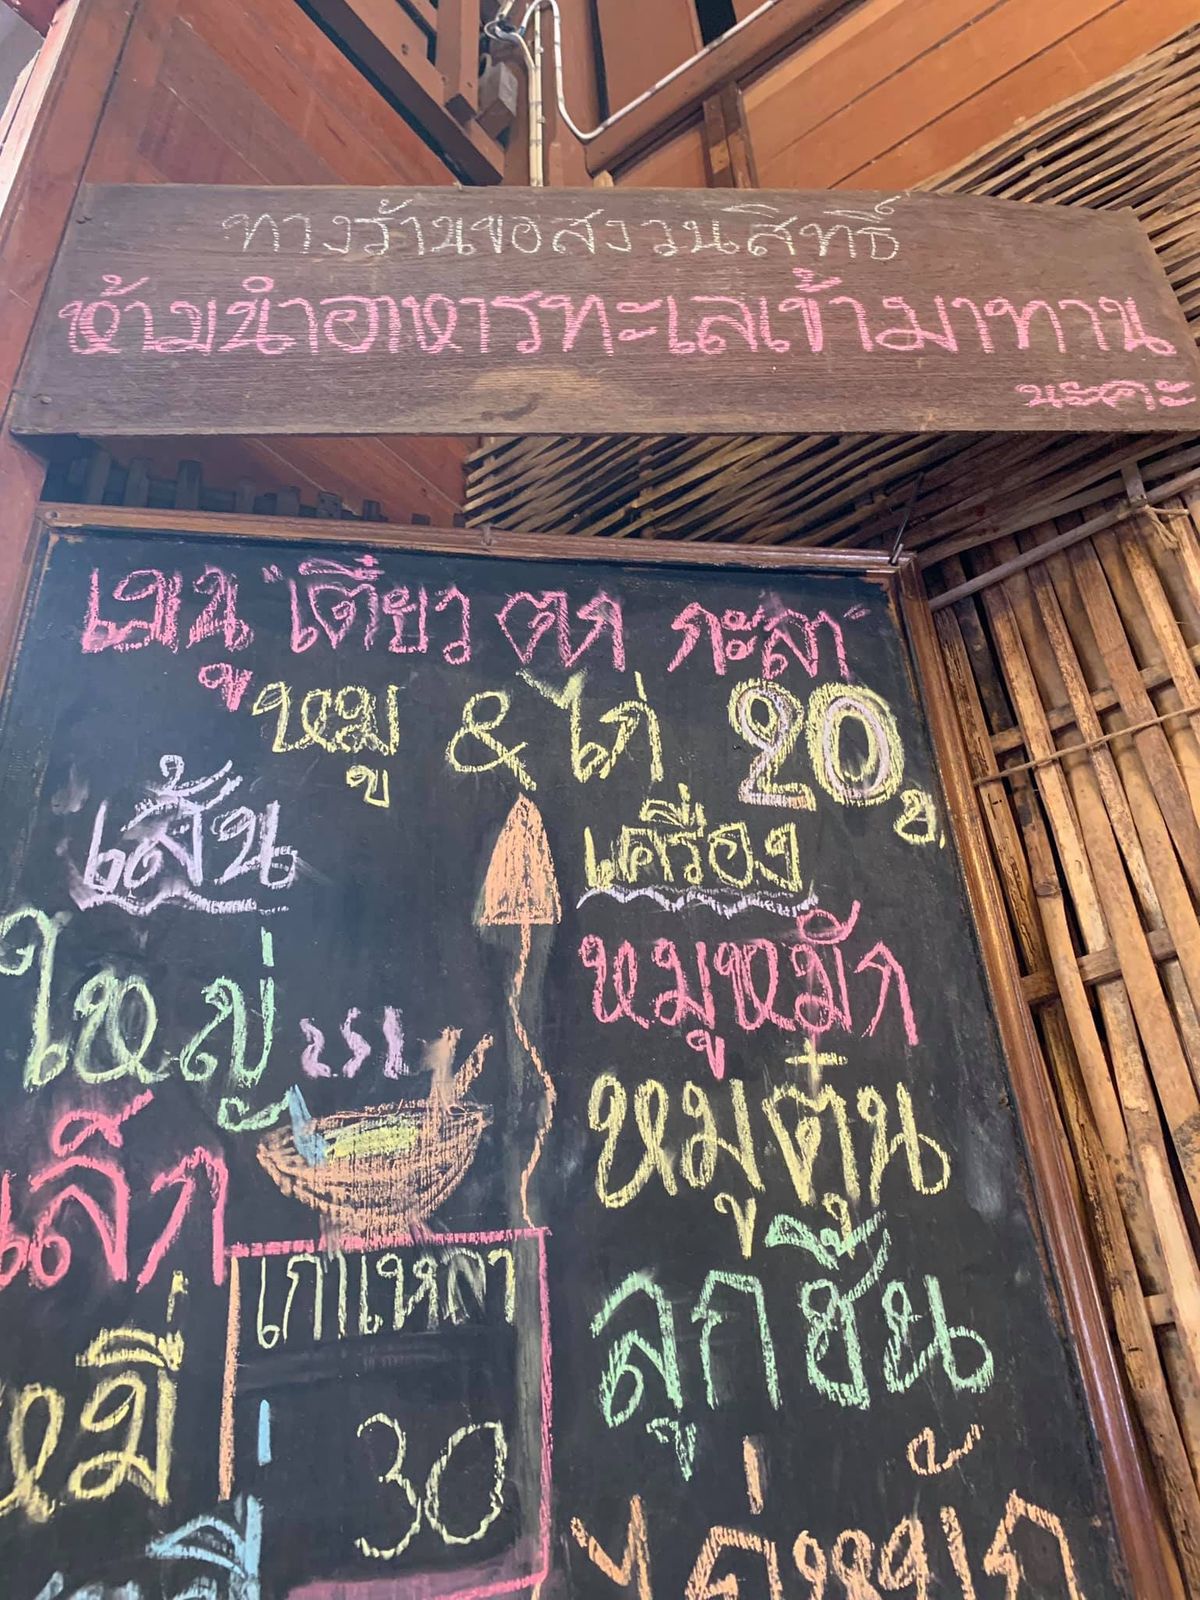 ทางร้านขอสงวนสิทธิ์
ห้ามนำอาหารทะเลเข้ามาทาน
นะคะ
เมนู "เตี๋ยว ตก กะลา"
หมู & ไก่ 20 บ.
เส้น
ใหญ่
เล็ก
หมี่
เกาเหลา
30
เครื่อง
หมูหมัก
หมูตุ๋น
ลูกชิ้น
ไก่หมัก